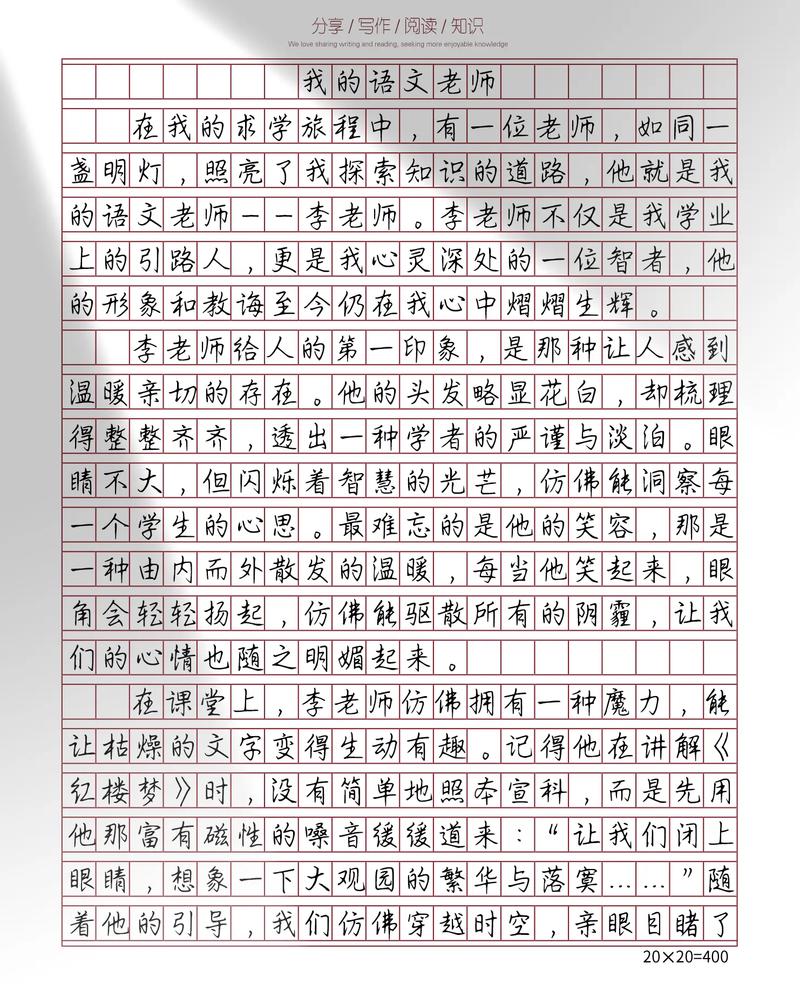 分享 / 写作 / 阅读 / 知识
We love sharing writing and reading, seeking more enjoyable knowledge
我的语文老师
在我的求学旅程中，有一位老师，如同一
盏明灯，照亮了我探索知识的道路，他就是我
的语文老师——李老师。李老师不仅是我学业
上的引路人，更是我心灵深处的一位智者，他
的形象和教诲至今仍在我心中熠熠生辉。
李老师给人的第一印象，是那种让人感到
温暖亲切的存在。他的头发略显花白，却梳理
得整整齐齐，透出一种学者的严谨与淡泊。眼
睛不大，但闪烁着智慧的光芒，仿佛能洞察每
一个学生的心思。最难忘的是他的笑容，那是
一种由内而外散发的温暖，每当他笑起来，眼
角会轻轻扬起，仿佛能驱散所有的阴霾，让我
们的心情也随之明媚起来。
在课堂上，李老师仿佛拥有一种魔力，能
让枯燥的文字变得生动有趣。记得他在讲解《
红楼梦》时，没有简单地照本宣科，而是先用
他那富有磁性的嗓音缓缓道来：“让我们闭上
眼睛，想象一下大观园的繁华与落寞……”随
着他的引导，我们仿佛穿越时空，亲眼目睹了
20×20=400